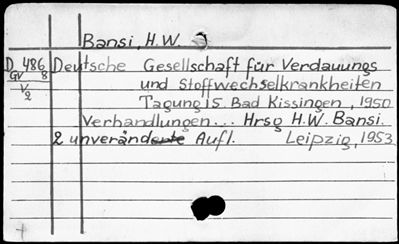 Bansi, H.W.
D 486 Deutsche Gesellschaft für Verdauungs
GV 8 und Stoffwechselkrankheiten
V/2 Tagung 15. Bad Kissingen, 1950
Verhandlungen... Hrsg H.W. Bansi.
2 unverändente Aufl. Leipzig, 1953